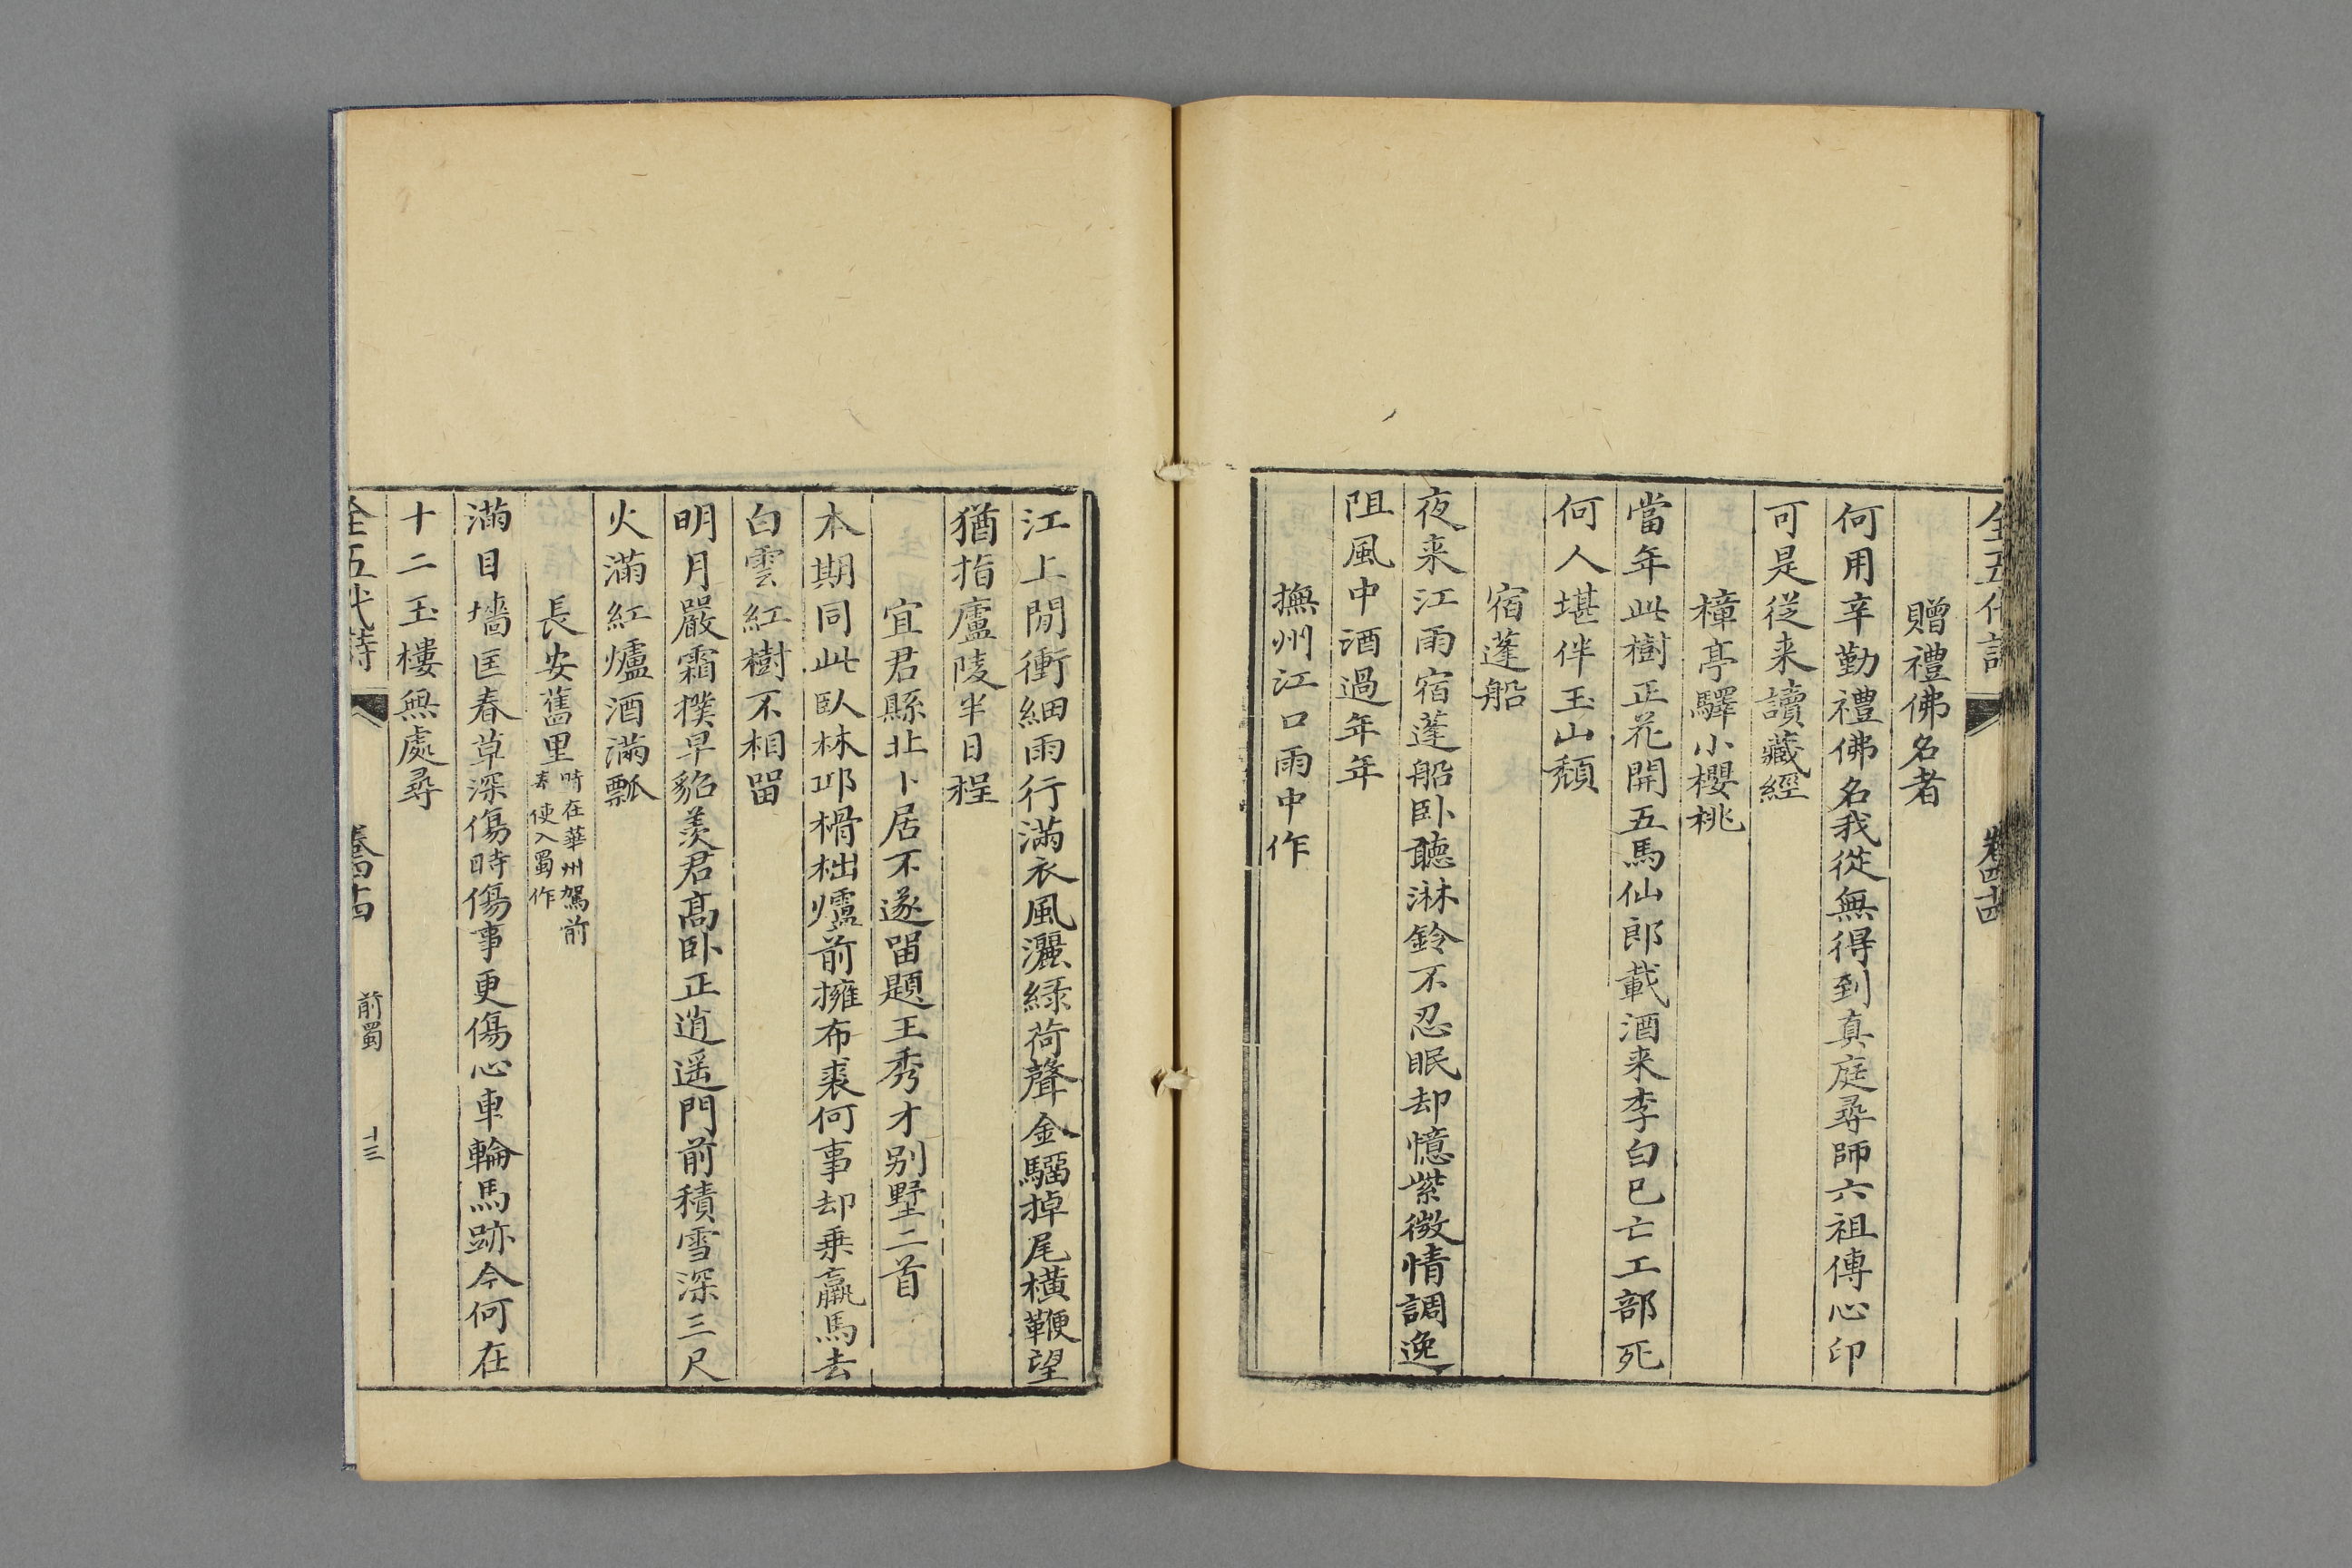 全五代詩
卷四十四
贈禮佛名者
何用辛勤禮佛名我從無得到真庭尋師六祖傳心印
可是從来讀藏經
樟亭驛小櫻桃
當年此樹正花開五馬仙郎載酒来李白已亡工部死
何人堪伴玉山頹
宿蓬船
夜来江雨宿蓬船卧聽淋鈴不忍眠却憶紫微情調逸
阻風中酒過年年
撫州江口雨中作
江上閒衝細雨行滿衣風灑緑荷聲金騮掉尾橫鞭望
猶指廬陵半日程
宜君縣北卜居不遂留題王秀才别墅二首
本期同此臥林邱榾柮爐前擁布裘何事却乗羸馬去
白雲紅樹不相留
明月嚴霜撲早貂羨君髙卧正逍遥門前積雪深三尺
火滿紅爐酒滿瓢
長安舊里時在華州駕前
奉使入蜀作
滿目墻匡春草深傷時傷事更傷心車輪馬跡今何在
十二玉樓無處尋
全五代詩
卷四十四
前蜀
十三